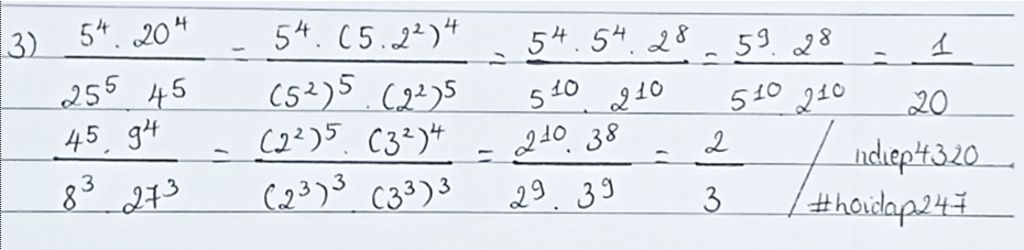 3) 5⁴ . 20⁴ / 25⁵ . 4⁵ = 5⁴ . (5.2²)⁴ / (5²)⁵ . (2²)⁵ = 5⁴ . 5⁴ . 2⁸ / 5¹⁰ . 2¹⁰ = 5⁹ . 2⁸ / 5¹⁰ 2¹⁰ = 1 / 20
4⁵ . 9⁴ / 8³ . 27³ = (2²)⁵ . (3²)⁴ / (2³)³ . (3³)³ = 2¹⁰ . 3⁸ / 2⁹ . 3⁹ = 2 / 3
/ ndiep4320
/ #hoidap247